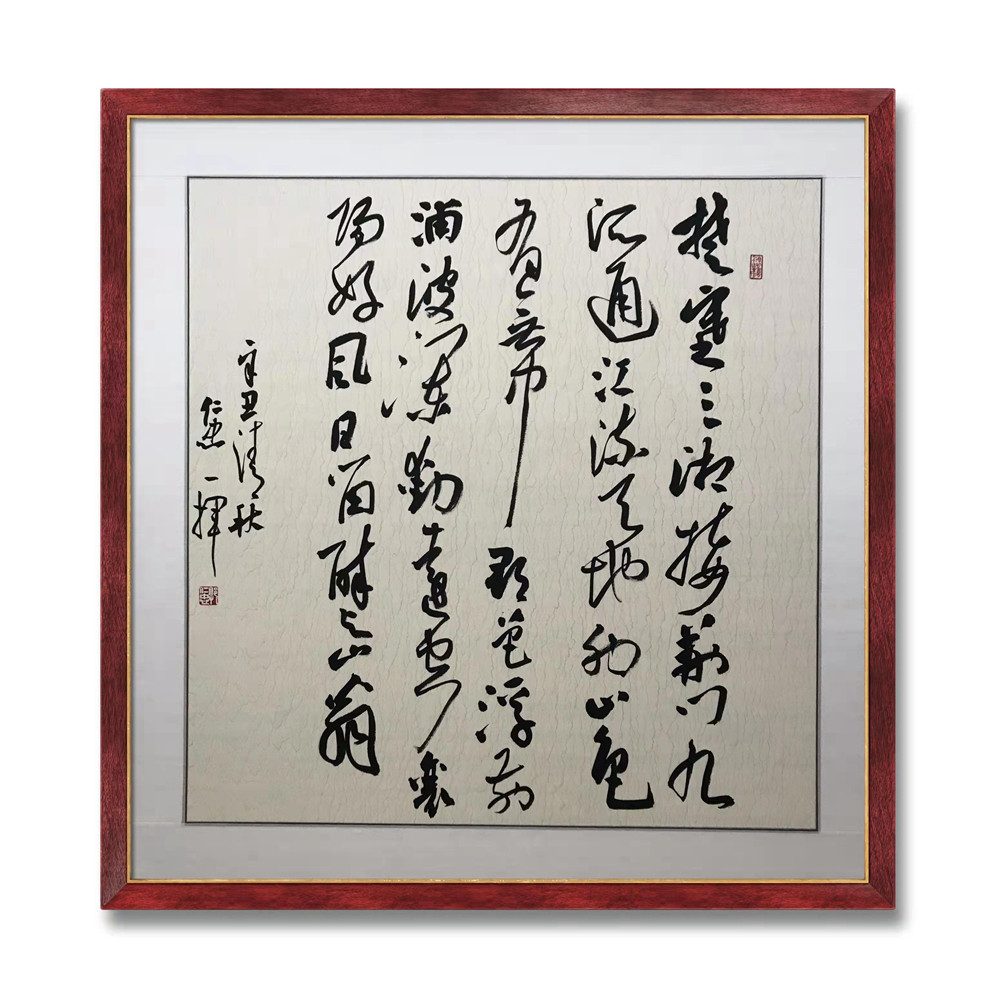 楚塞三湘接荆門九
派通江流天地外山色
有無中郡邑浮前
浦波瀾動遠空襄
陽好風日留醉与山翁
辛丑清秋
仁 一揮